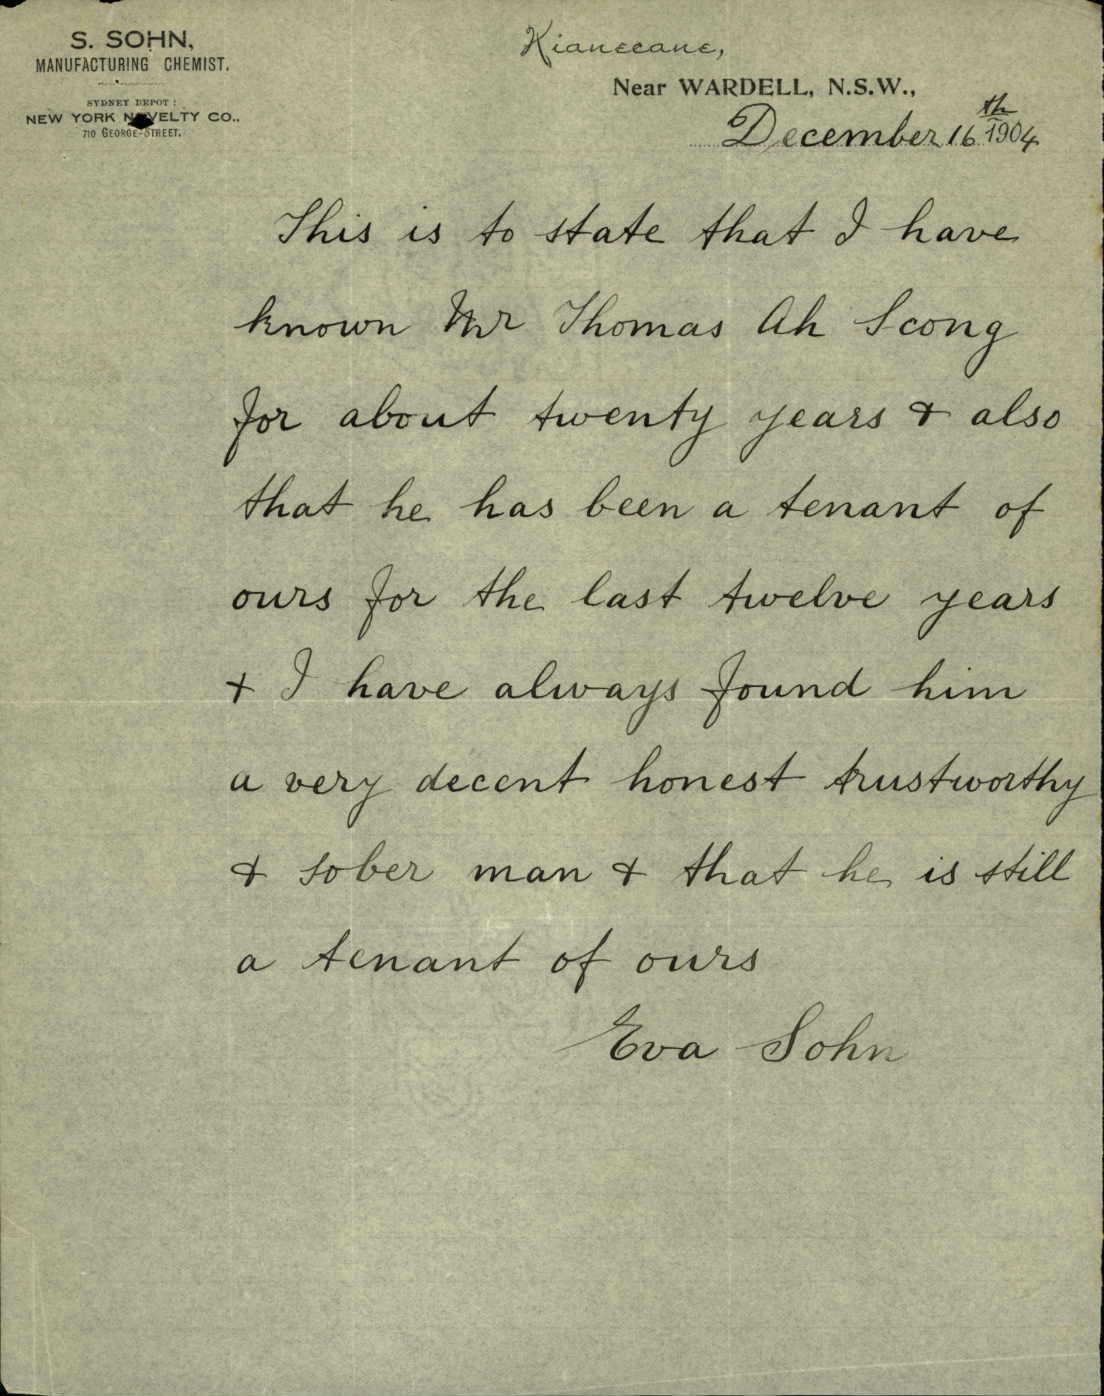 S. SOHN,
MANUFACTURING CHEMIST.
SYDNEY DEPOT:
NEW YORK NOVELTY CO.,
710 GEORGE-STREET.
Near WARDELL, N.S.W.,
December 16th 1904
This is to state that I have
known Mr Thomas Ah Scong
for about twenty years & also
that he has been a tenant of
ours for the last twelve years
& I have always found him
a very decent honest trustworthy
& sober man & that he is still
a tenant of ours
Eva Sohn